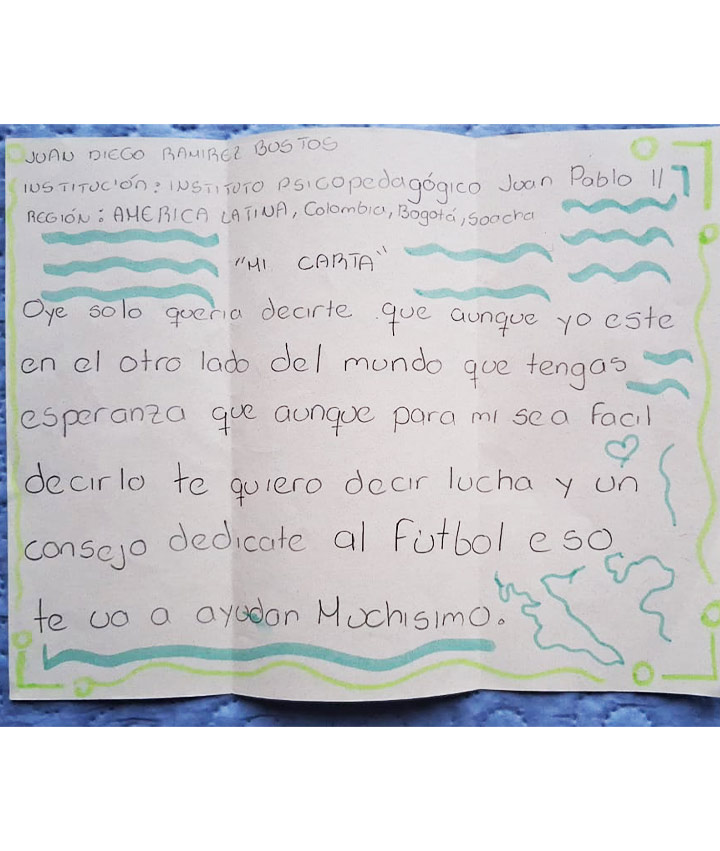 JUAN DIEGO RAMIREZ BUSTOS
INSTITUCIÓN: INSTITUTO PSICOPEDAGÓGICO Juan Pablo II
REGIÓN: AMERICA LATINA, Colombia, Bogotá, Soacha
"MI CARTA"
Oye solo queria decirte que aunque yo este
en el otro lado del mundo que tengas
esperanza que aunque para mi sea facil
decirlo te quiero decir lucha y un
consejo dedicate al fútbol eso
te va a ayudan Muchisimo.